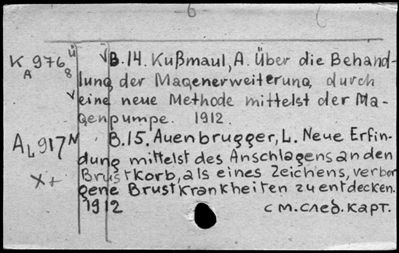 - 6 -
K 976 ü
A 8 v
B.14. Kußmaul, A. Über die Behand-
lung der Magenerweiterung durch
eine neue Methode mittelst der Ma-
genpumpe. 1912.
AL917 N
X+
B.15. Auenbrugger, L. Neue Erfin-
dung mittelst des Anschlagens an den
Brustkorb, als eines Zeichens, verbor
gene Brustkrankheiten zu entdecken.
1912
см. след. карт.